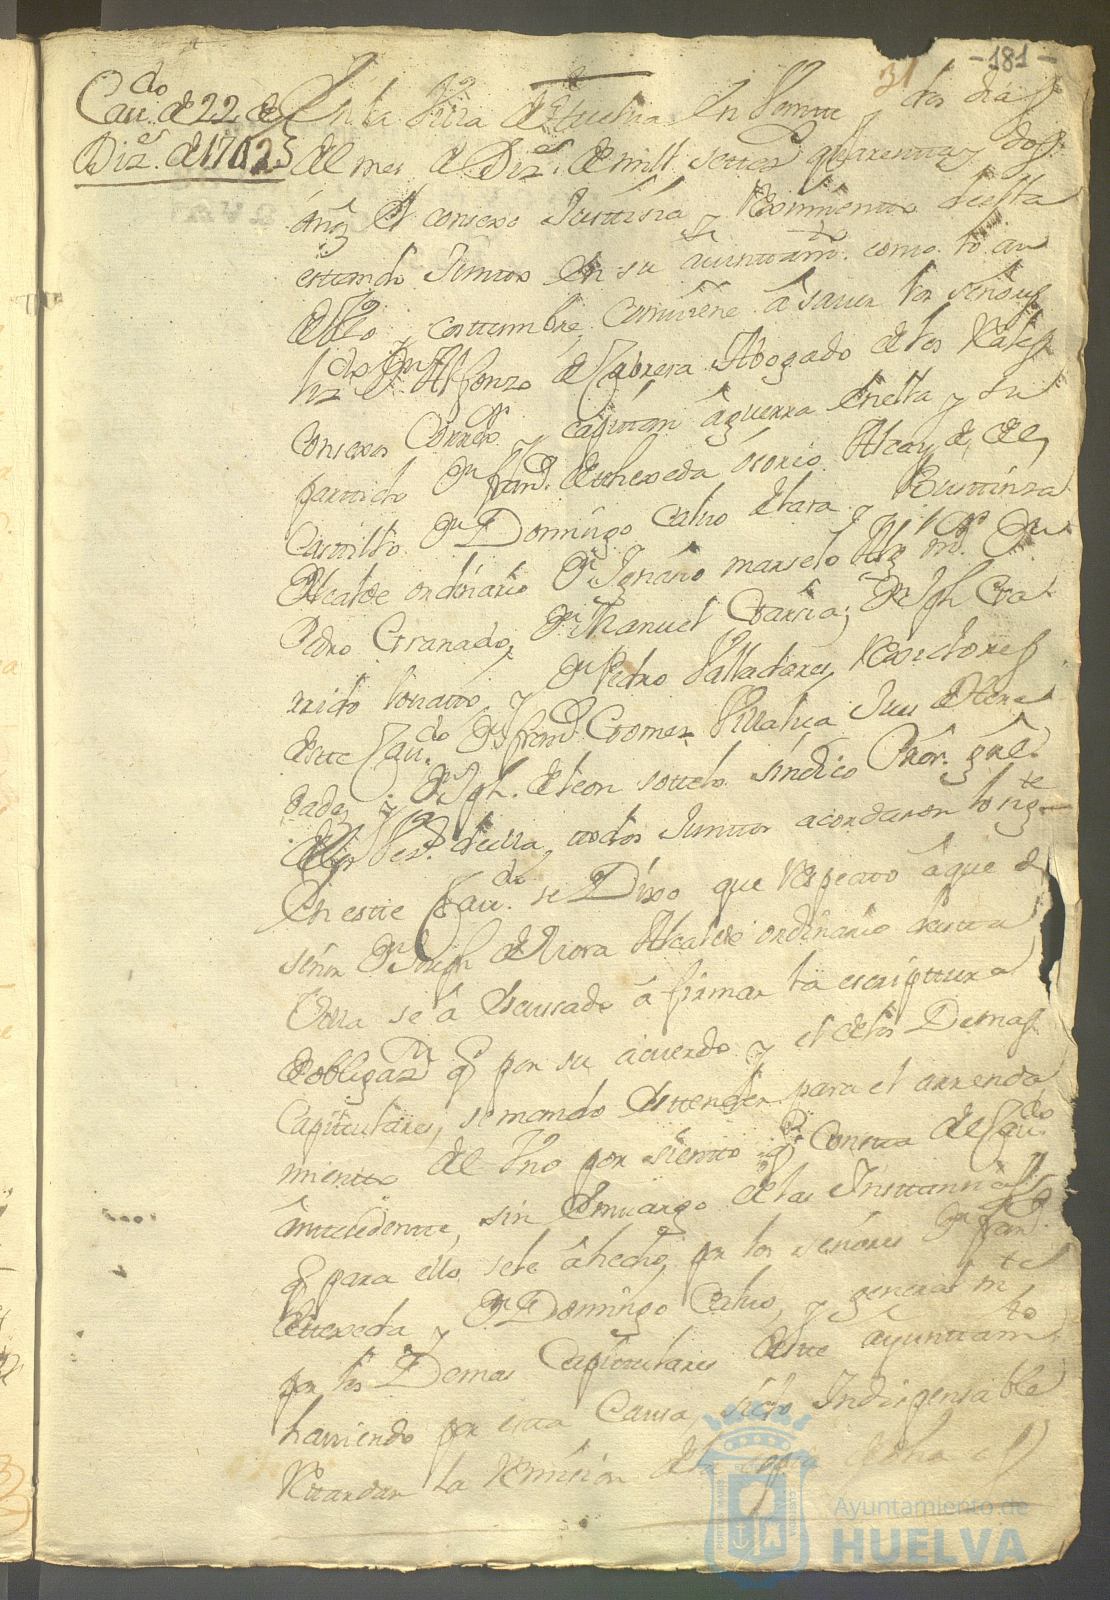 31 -181-
Cau.do de 22 de
Diz.e de 1742
En la Villa de Huelva En Veintte y dos dias
del mes de Diz.e de mill settez.s quarentta y dos
años El consexo Justtisia y Reximientto de esta
esttando Junttos En su aiunttam.to como lo an
de Vso y costtumbre, Combiene â sauer los señores
liz.do Dn Alfonzo de Cabrera Abogado de los Reales
Consexos Correx.or y capittan â guerra de esta y su
parttido Dn fran.co de thexeda osorio Alcayde de el
Casttillo Dn Domingo Calvo de lara y Busttinza
Alcalde ordinario Dn Ignasio marselo Alg.l m.or Dn
Pedro Granado, Dn Manuel Garsia, Dn Jph Ga-
rrido lonatto y Dn Pedro Valladares Rexidores
deste Cau.do Dn fran.co Gomez Villalua Jues de here-
dades y Dn Jph. de leon sottelo sindico Pror. gral
de los Vez.s de ella, ttodos Junttos acordaron lo sig.te
En estte Cau.do se Dixo que Respectto âque el
señor Dn Joseph de Mora Alcalde ordinario desta
Villa se â Escusado â firmar la escripttura
de obligaz.n q por su acuerdo y el de los Demas
Capittulares, se mando Esttender para el arrenda
mientto del Vno por sientto q Constta del Cau.do
anttesedentte, sin Embargo de las Insttansias
q para ello se le â hecho por los señores Dn fran.co
de ttexeda y Dn Domingo Calvo, y general m.te
por los Demas Capittulares deste ayunttam.to
hauiendo por estta Causa, sido Indispensable
Rettardar la Remision de la
Ayuntamiento de
HUELVA